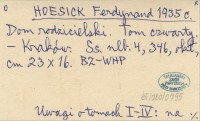 HOESICK Ferdynand 1935 r.
Dom rodzicielski. Tom czwarty.
– Kraków. Ss. nlb. 4, 346, okł.,
cm 23 x 16. BZ-WHP
Uwagi o tomach I-IV: na %